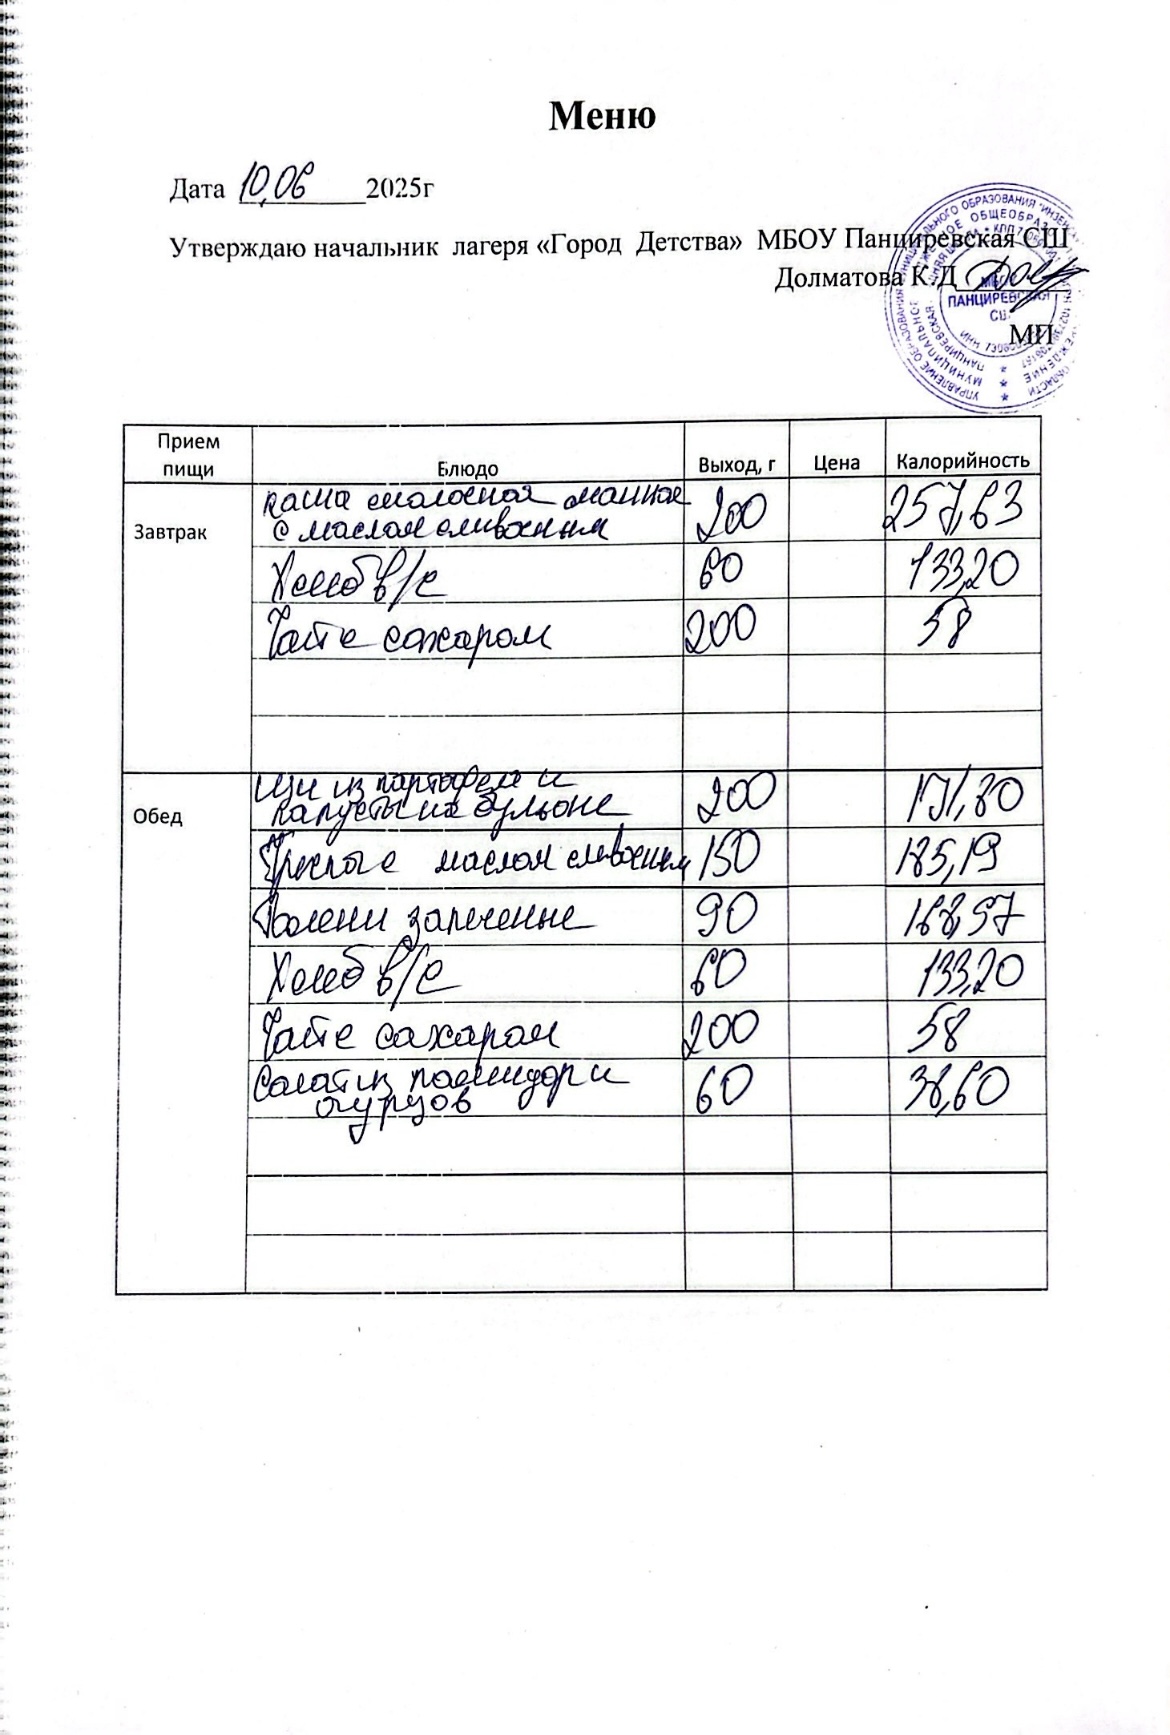 Меню
Дата 10.06 2025г
Утверждаю начальник лагеря «Город Детства» МБОУ Панциревская СШ
Долматова К.Д
МП
ПАНЦИРЕВСКАЯ
Прием пищи Блюдо Выход, г Цена Калорийность
Завтрак
каша молочная манная
с маслом сливочным 200 257,63
Хлеб в/с 60 133,20
Чай с сахаром 200 58
Обед
Щи из картофеля и
капусты на бульоне 200 171,80
с маслом сливочным 150 185,19
Голени запеченные 90 168,97
Хлеб в/с 60 133,20
Чай с сахаром 200 58
Салат из помидор и
огурцов 60 38,60